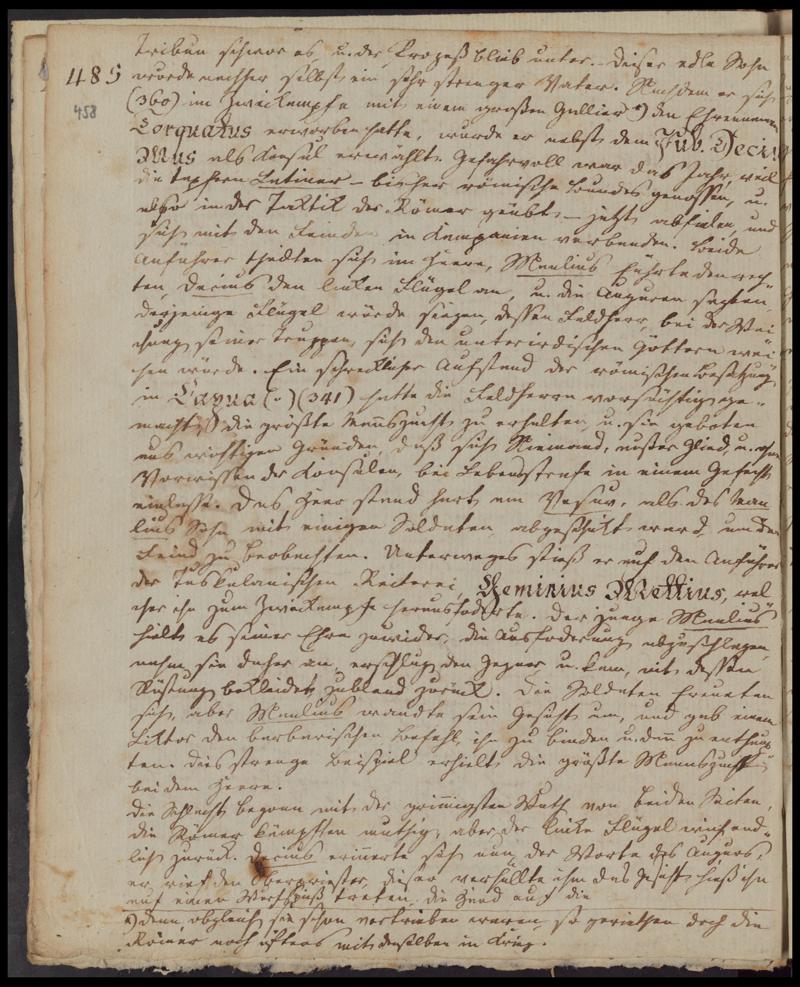 Tribun schwor es, u. der Prozeß blieb unter. – Dieser edle Sohn
485 wurde nachher selbst ein sehr strenger Vater. Nachdem er sich
458
(360) im Zweikampfe mit einem großen Gallier *) den Ehrennamen
Torquatus erworben hatte, wurde er nebst dem Pub. Decius
Mus als Konsul erwählt. Gefahrvoll war das Jahr, weil
die tapfern Latiner – bisher römische Bundesgenossen, u.
also in der Taktik der Römer geübt – jetzt abfielen, und
sich mit den Feinden in Kampanien verbanden. Beide
Anführer theilten sich im Heere, Manlius führte den rech-
ten, Decius den linken Flügel an, u. die Auguren sagten,
derjenige Flügel würde siegen, dessen Feldherr, bei der Wei
chung seiner Truppen, sich den unterirdischen Göttern wei
hen würde. Ein schrecklicher Aufstand der römischen Besatzung
in Capua (341) hatte die Feldherrn vorsichtig ge-
macht, die größte Mannszucht zu erhalten, u. sie geboten
aus wichtigen Gründen, daß sich Niemand, außer Glied, u. ohne
Vorwissen der Konsulen, bei Lebensstrafe in einem Gefecht
einlasse. Das Heer stand hart am Vesuv, als des Man
lius Sohn mit einigen Soldaten abgeschickt ward, um den
Feind zu beobachten. Unterweges stieß er auf den Anführer
der Tuskulanischen Reiterei, Geminius Mettius, wel
cher ihn zum Zweikampfe herausfoderte. Der junge Manlius
hielt es seiner Ehre zuwider, die Ausfoderung abzuschlagen,
nahm sie daher an, erschlug den Gegner u. kam, mit dessen
Rüstung bekleidet, zurück. Die Soldaten freueten
sich, aber Manlius wandte sein Gesicht um, und gab einem
Liktor den barbarischen Befehl, ihn zu binden u. dann zu enthaup
ten. Dies strenge Beispiel erhielt die größte Mannszucht
bei dem Heere.
Die Schlacht begann mit der grimmigsten Wuth von beiden Seiten,
die Römer kämpften muthig, aber der linke Flügel wich end-
lich zurück. Decius erinnerte sich nun der Worte des Augurs,
er rief den Oberpriester, dieser verhüllte ihm das Gesicht, hieß ihn
auf einen Wurfspieß treten, die Hand auf die
*) denn obgleich sie schon vertrieben waren, so geriethen doch die
Römer noch öfters mit denselben in Krieg.